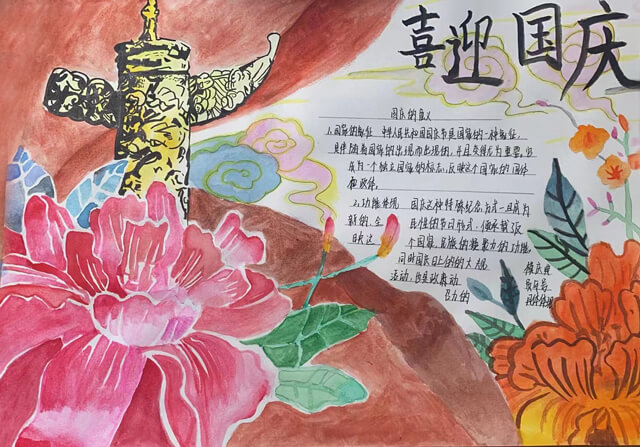 喜迎国庆
国庆的意义
1、国家的象征 中华人民共和国国庆节是国家的一种象征,
是伴随着国家的出现而出现的,并且变得尤为重要,它
成为一个独立国家的标志,反映这个国家的国体
和政体。
2、功能体现 国庆这种特殊纪念方式一旦成为
新的、全 民性的节日形式,便承载了
反映这 个国家、民族的凝聚力的功能,
同时国庆日上的的大规 模庆典
活动,也是政府动 员与号
召力的 具体体现